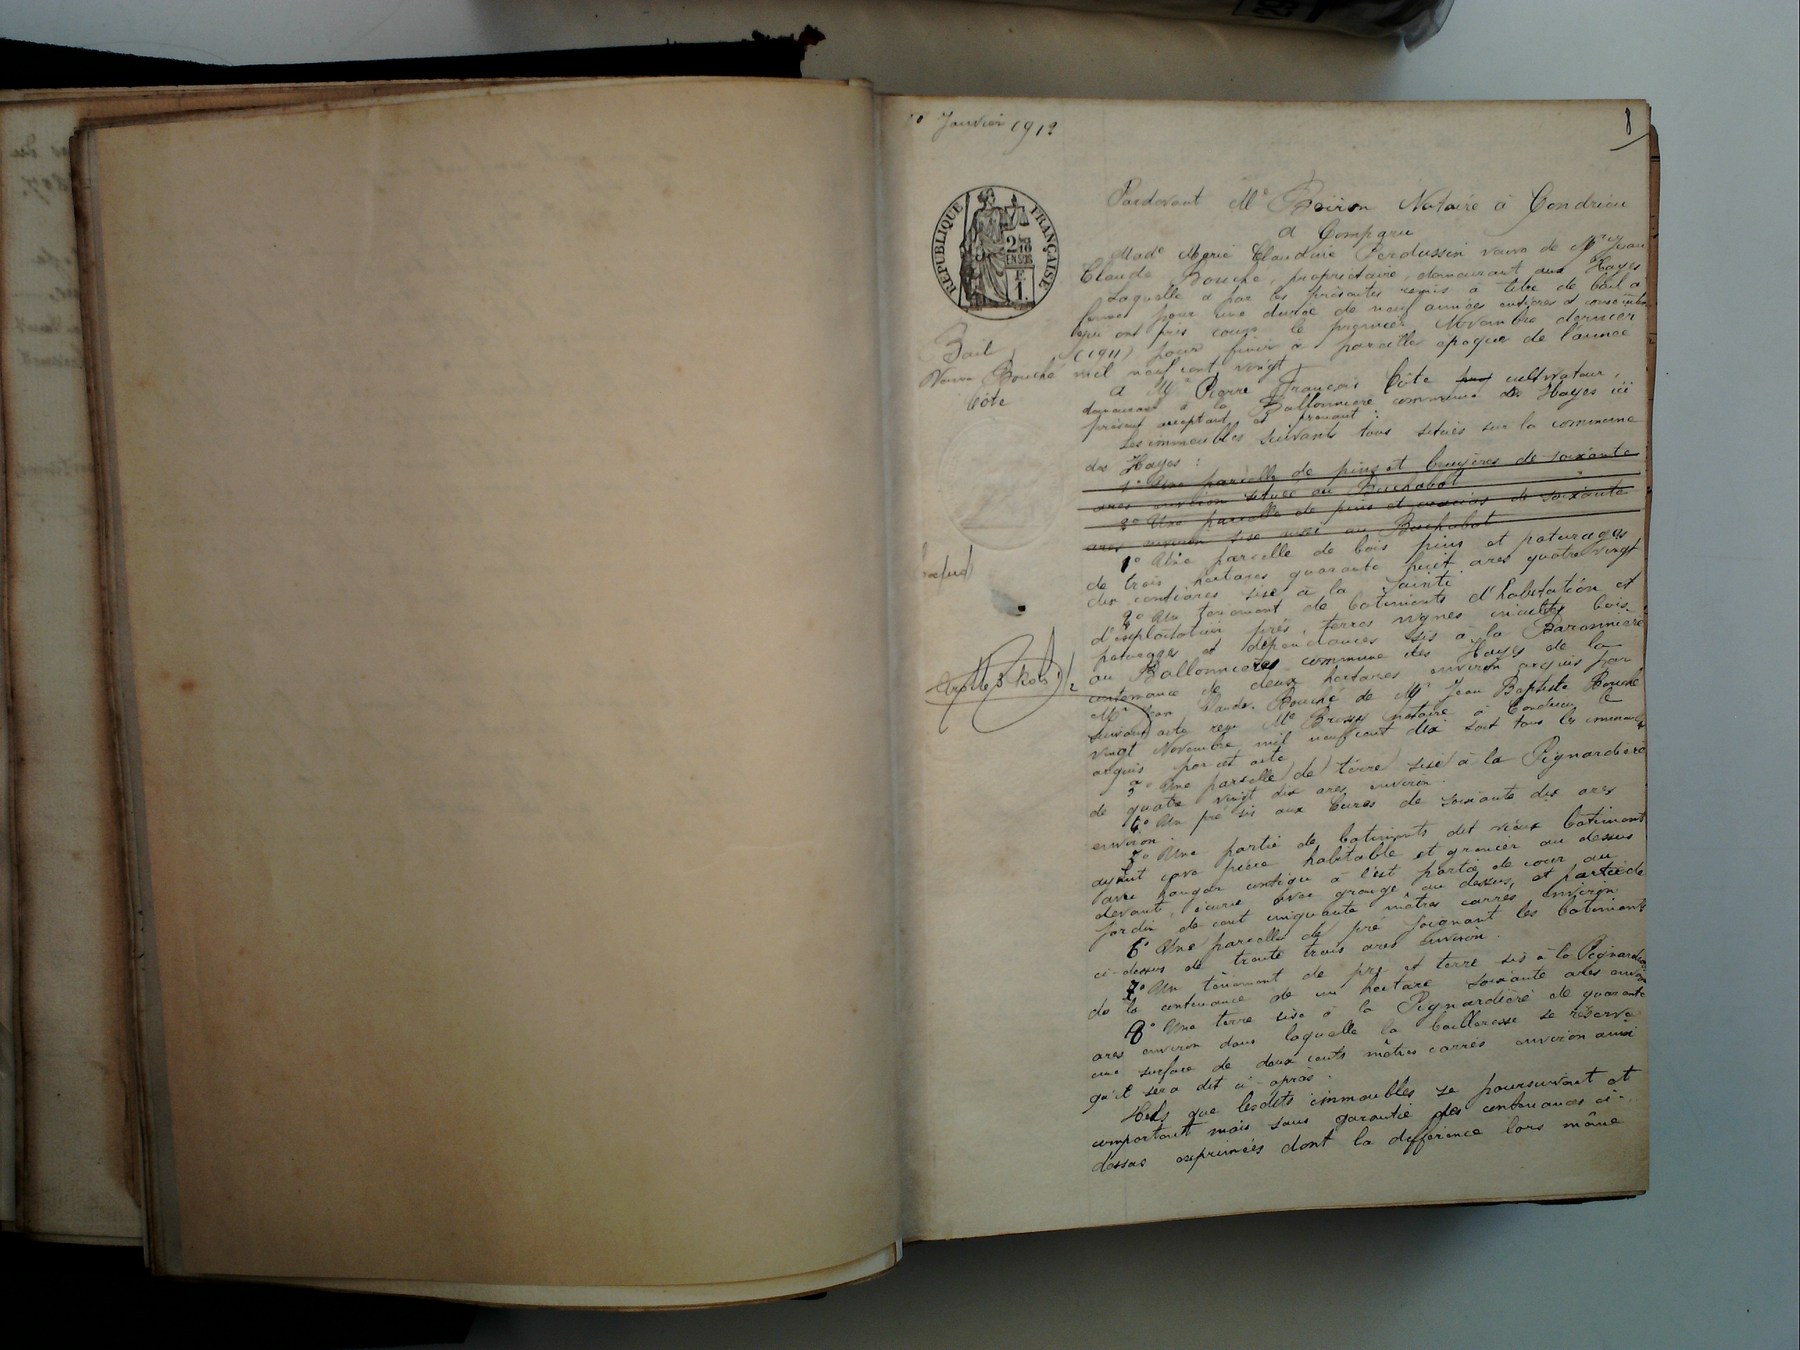 Janvier 1912
8
RÉPUBLIQUE FRANÇAISE
2/10
EN SUS
1 F.
Bail
Veuve Bouché
Côte
Pardevant Me Boiron Notaire à Condrieu
a Comparu
Made Marie Claudine Perdussin veuve de Mr Jean
Claude Bouché, propriétaire, demeurant aux Hayes
Laquelle a par les présentes remis à titre de bail a
ferme pour une durée de neuf années entières et consécutives
qui ont pris cours le premier Novembre dernier
(1911) pour finir à pareille époque de l'année
mil neuf cent vingt
A Mr Pierre François Côte cultivateur,
demeurant à la Ballonnière commune des Hayes ici
présent acceptant et prenant :
Les immeubles suivants tous situés sur la commune
des Hayes :
1° Une parcelle de pins et bruyères de soixante
ares environ située au Buchabot
2° Une parcelle de pins et de soixante
ares environ sise aussi au Buchabot
1° Une parcelle de bois pins et paturages
de trois hectares quarante huit ares quatre vingt
dix centiares sise à la Sainte
2° Un tenement de batiments d'habitation et
d'exploitation prés, terres vignes incultes bois
paturages et dépendances sis à la Baronnière
au Ballonnières commune des Hayes de la
contenance de deux hectares environ acquis par
Mr Jean Claude Bouché de Mr Jean Baptiste Bouché
suivant acte reçu Me Brossy notaire à Condrieu le
vingt Novembre mil neuf cent dix soit tous les immeubles
acquis par cet acte
3° Une parcelle de terre sise à la Pignardière
de quatre vingt dix ares environ.
4° Un pré sis aux Cures de soixante dix ares
environ
5° Une partie de batiments dit vieux batiment
ayant cave pièce habitable et grenier au dessus
avec hangar contigu à l'est partie de cour au
devant, écurie avec grange au dessus, et partie de
jardin de cent cinquante mètres carrés environ
6° Une parcelle de pré joignant les batiments
ci-dessus de trente trois ares environ.
7° Un tènement de pré et terre sis à la Pignardière
de la contenance de un hectare soixante ares environ
8° Une terre sise à la Pignardière de quarante
ares environ dans laquelle la bailleresse se réserve
une surface de deux cents mètres carrés environ ainsi
qu'il sera dit ci-après.
Tels que lesdits immeubles se poursuivent et
comportent mais sans garantie des contenances ci-
dessus exprimées dont la différence lors même